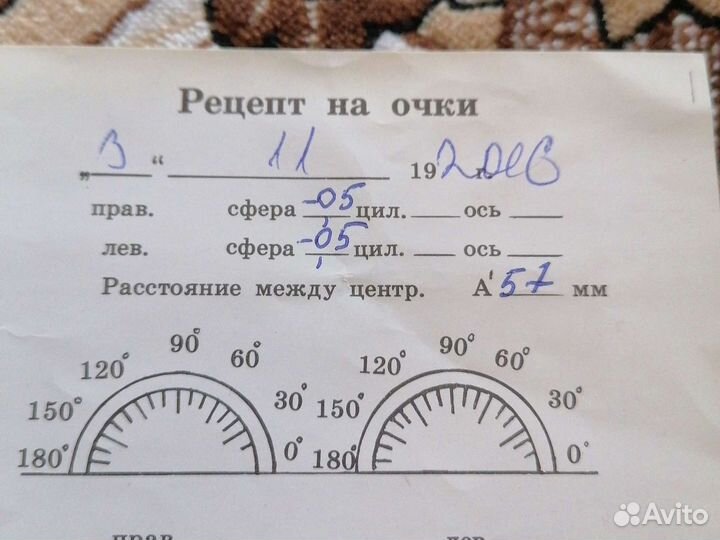 Рецепт на очки
„ 3 “ 11 19 г.
прав. сфера -0,5 цил. ось
лев. сфера -0,5 цил. ось
Расстояние между центр. А' 57 мм
180° 150° 120° 90° 60° 30° 0° 180° 150° 120° 90° 60° 30° 0°
прав. лев.
Avito